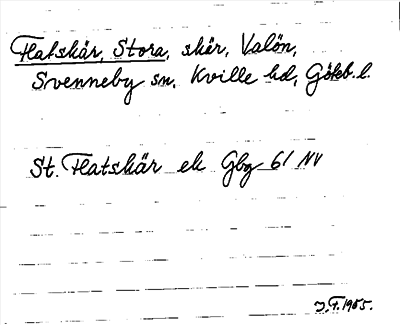 Flatskär, Stora, skär, Valön,
Svenneby sn, Kville hd, Göteb. l.
St. Flatskär ek Gbg 61 NV
J.F. 1955.